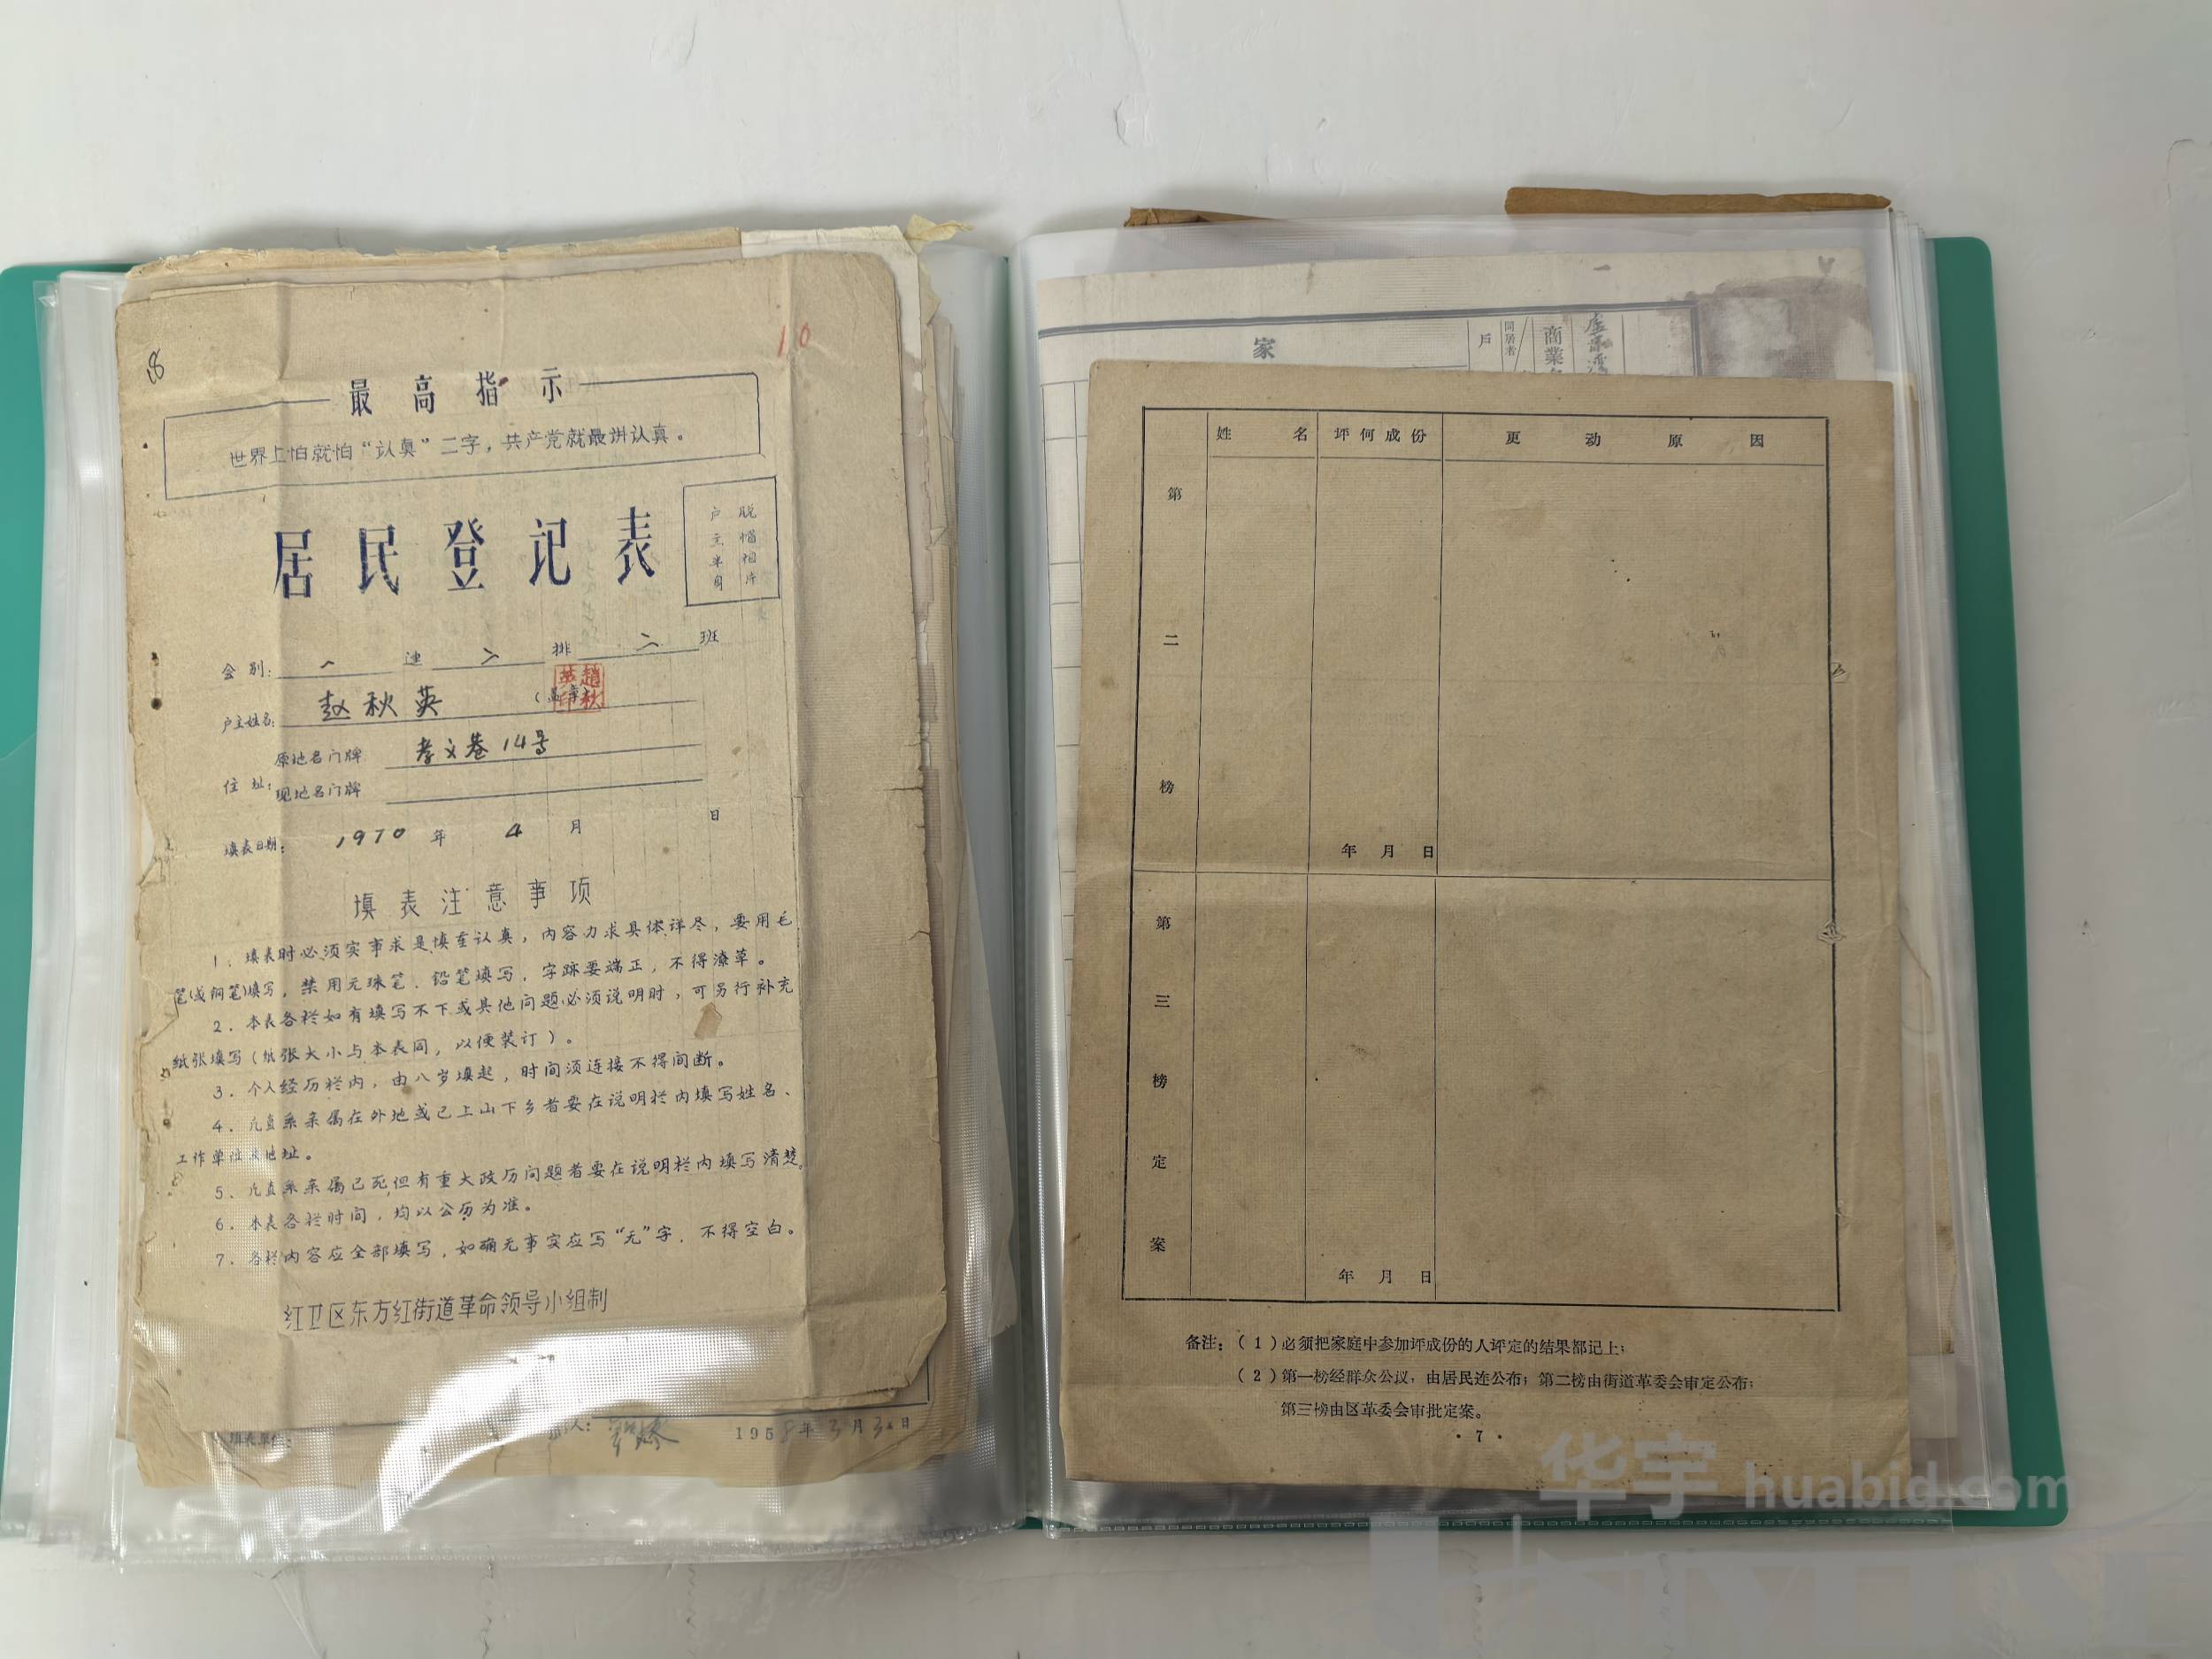 8
10
最高指示
世界上怕就怕“认真”二字，共产党就最讲认真。
居民登记表
户主半身
脱帽相片
会别：一连 排 二 班
户主姓名：赵秋英（盖章）
趙秋英印
住址：原地名门牌 孝义巷14号
现地名门牌
填表日期：1970年4月 日
填表注意事项
1．填表时必须实事求是填查认真，内容力求具体详尽，要用毛
笔（或钢笔）填写，禁用元珠笔、铅笔填写，字跡要端正，不得潦草。
2．本表各栏如有填写不下或其他问题必须说明时，可另行补充
纸张填写（纸张大小与本表同，以便装订）。
3．个人经历栏内，由八岁填起，时间须连接不得间断。
4．凡直系亲属在外地或已上山下乡者要在说明栏内填写姓名、
工作单位及地址。
5．凡直系亲属已死但有重大政历问题者要在说明栏内填写清楚。
6．本表各栏时间，均以公历为准。
7．各栏内容应全部填写，如确无事实应写“无”字，不得空白。
红卫区东方红街道革命领导小组制
填表单位：
1958年3月3 日
家
户
同居者
商業
姓名 评何成份 更动原因
第二榜
年月日
第三榜定案
年月日
备注：（1）必须把家庭中参加评成份的人评定的结果都记上；
（2）第一榜经群众公议，由居民连公布；第二榜由街道革委会审定公布；
第三榜由区革委会审批定案。
·7·
华宇 huabid.com